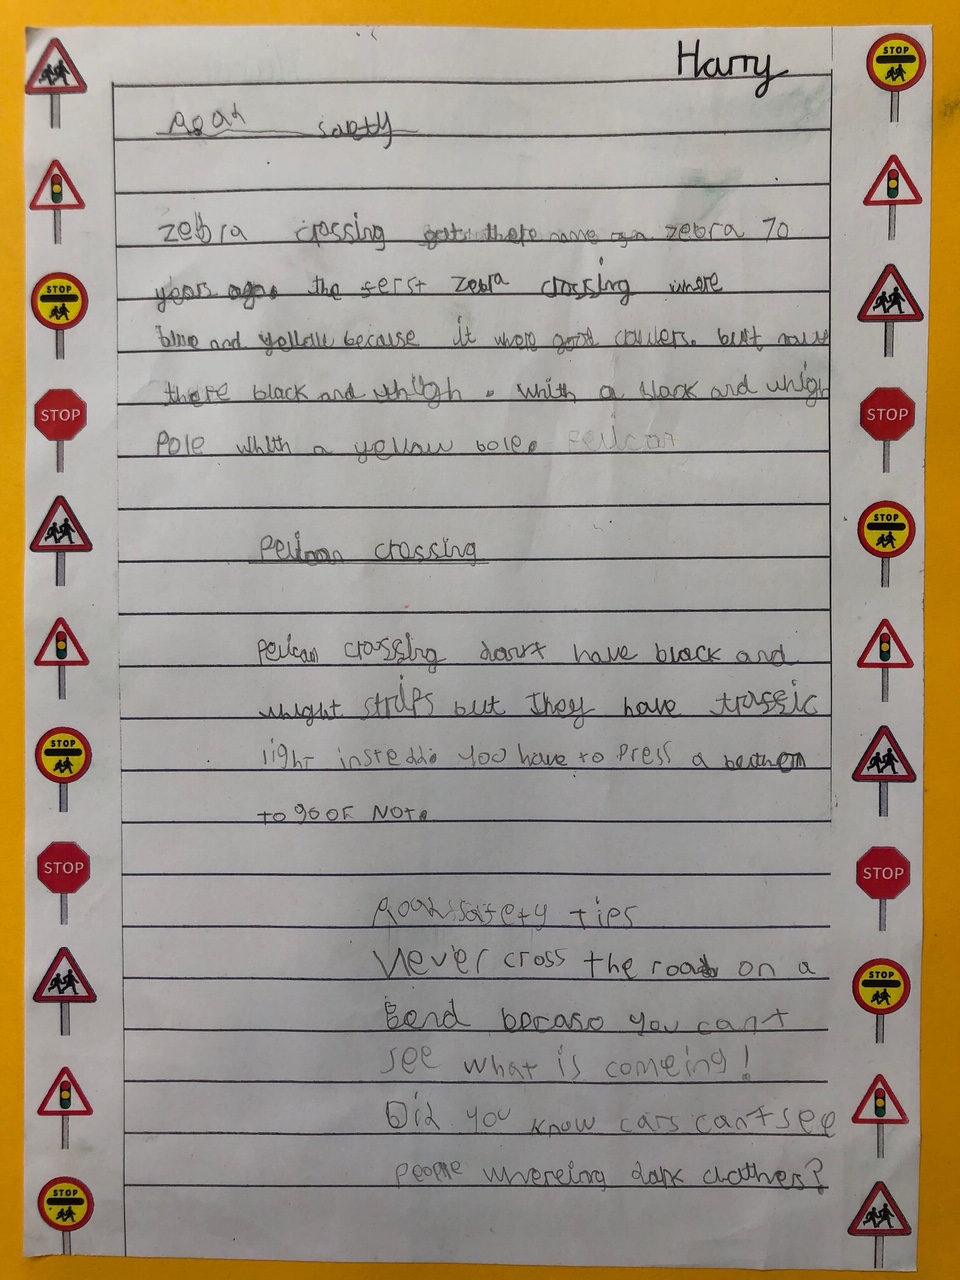 Harry
Roah saetty
zebra crossing gets there name on a zebra 70
years ago. the ferst zebra crossing where
blue and yellow because it where good coulers. but now
there black and whigh. with a black and whigh
Pole whith a yellow bole. Pelican
Pelican crossing
Pelican crossing dont have black and
whight strips but they have traffic
light instedd. you have to press a buttom
to go or Not.
Road safety tips
Never cross the road on a
Bend becaso you can't
see what is comeing!
Did you know cars can't see
people whereing dark clothes?
STOP
STOP
STOP
STOP
STOP
STOP
STOP
STOP
STOP
STOP